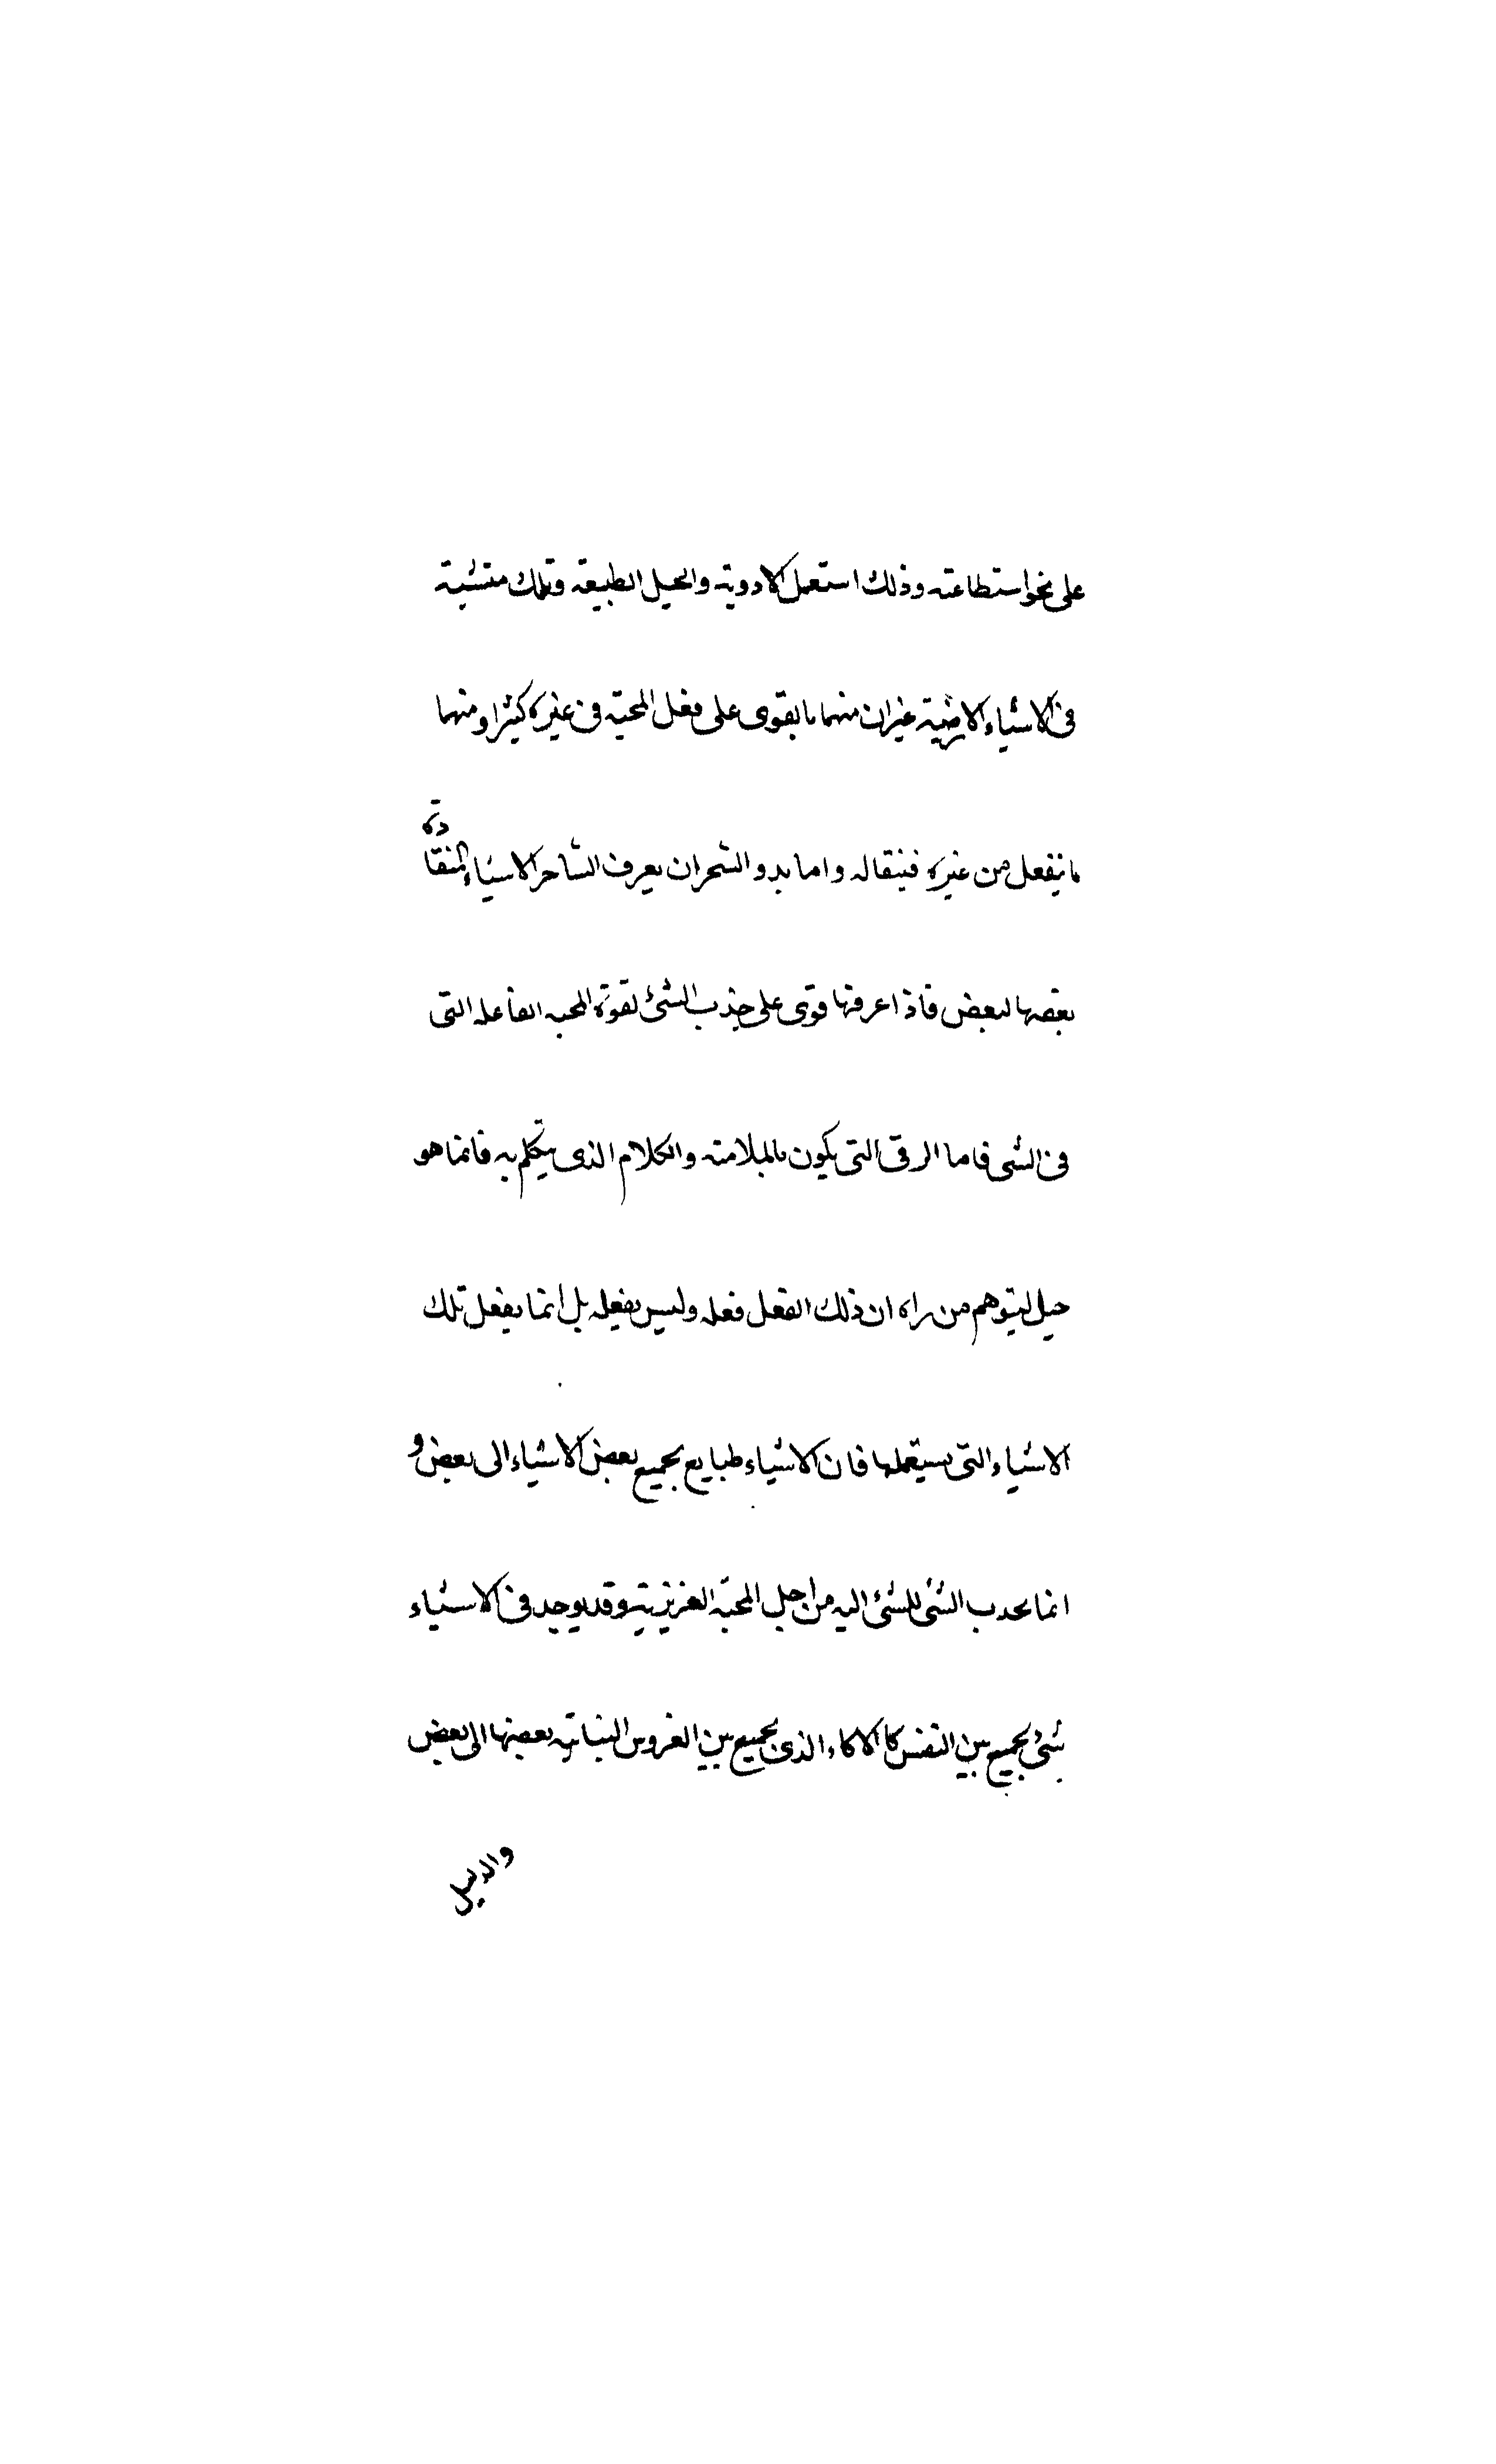 على نحو استطاعته وذلك استعمل الادوية والحيل الطبيعة وتلك منتشبة
فى الاشياء الارضية غيران منهما ما يقوى على فعل المحبة فى غيره كثيرا ومنهما
ما ينفعل من غيره فينقاله واما بدو السحر ان يعرف الساحر الاشياء المنقادة
بعضها لبعض فاذا عرفها قوى على جذب الشئ لقوة المحبه الفاعله التى
فى الشى فاما الرقى التى يكون بالملامته والكلام الذى يتكلم به فانما هو
حيل ليتوهم من راه ان ذلك الفعل فعله وليس بفعله بل انما يفعل تلك
الاشياء التى يستعملها فان الاشياء طبايع يجميع بعض الاشياء الى بعض و
انما يجدب الشئ للشئ اليه من اجل المحبة الغريزية وقد يوجد فى الاشياء
شئ يجميع بين النفس كالاكاء الذى يجميع بين الغروس النباتيه بعضها الى بعض
والدليل